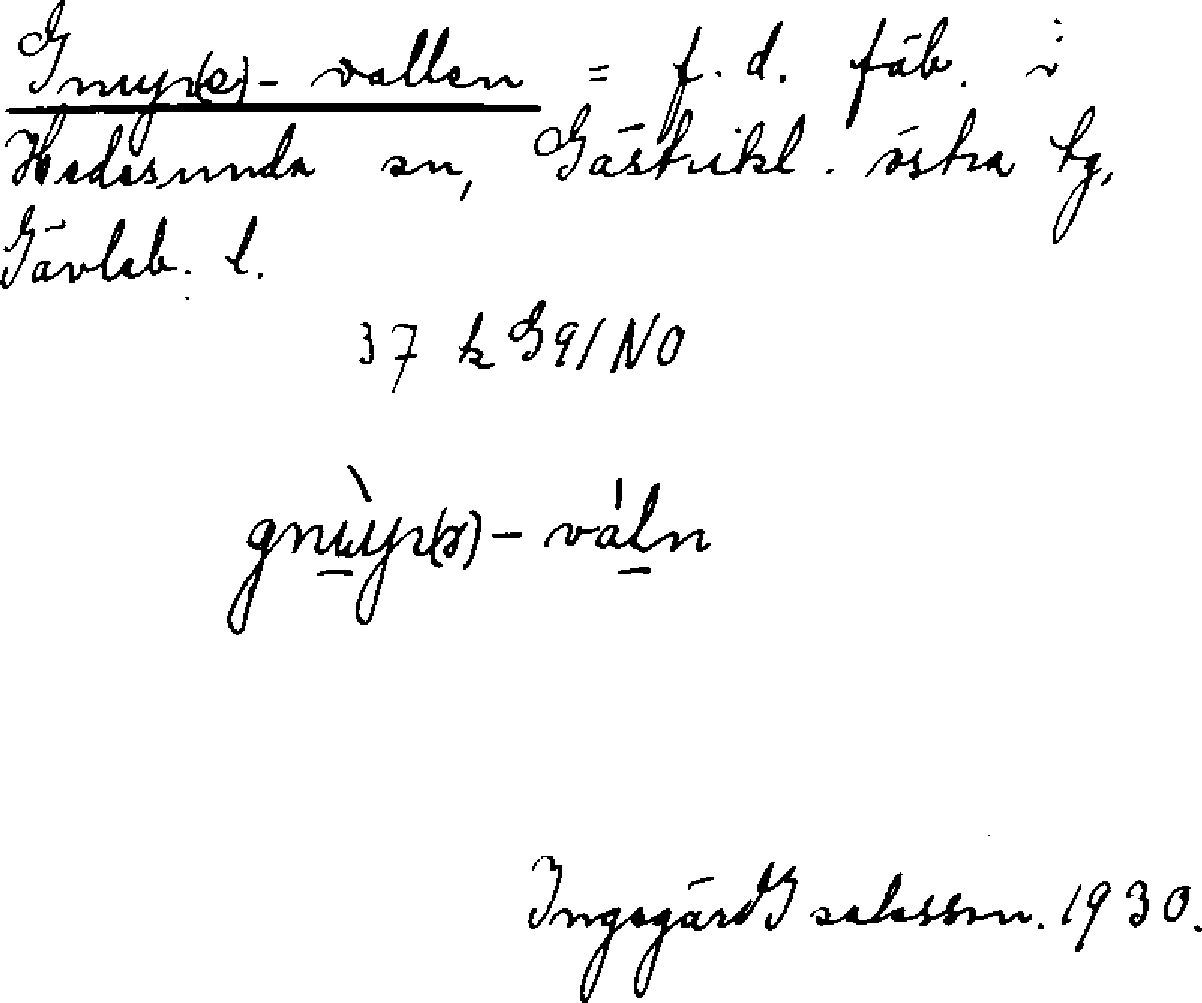 Gnuyr(e)-vallen = f.d. fäb. i
Hedesunda sn, Gästrikl. östra tg,
Gävleb. l.
37 k G 91 NO
gnùyr(ə)-váln
Ingegärd Isaksson. 1930.